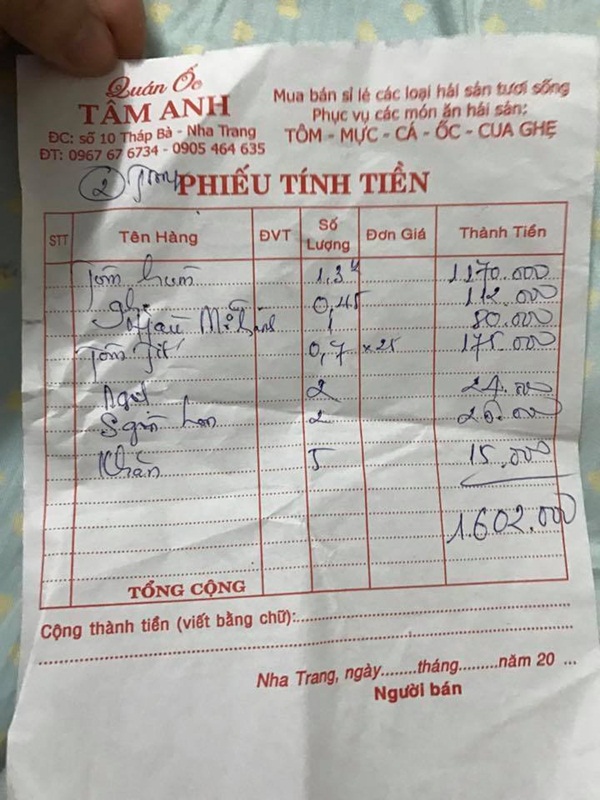 Quán Ốc
TÂM ANH
ĐC: số 10 Tháp Bà - Nha Trang
ĐT: 0967 67 6734 - 0905 464 635
Mua bán sỉ lẻ các loại hải sản tươi sống
Phục vụ các món ăn hải sản:
TÔM - MỰC - CÁ - ỐC - CUA GHẸ
2
PHIẾU TÍNH TIỀN
STT Tên Hàng ĐVT Số Lượng Đơn Giá Thành Tiền
Tôm hùm 1,3 1.170.000
ghẹ 0,45 112.000
Hàu Mỡ hành 1 80.000
Tôm Tít 0,7 x25 175.000
2 24.000
Sgòn 2 26.000
Khăn 5 15.000
1.602.000
TỔNG CỘNG
Cộng thành tiền (viết bằng chữ):
Nha Trang, ngày........tháng.........năm 20 ...
Người bán